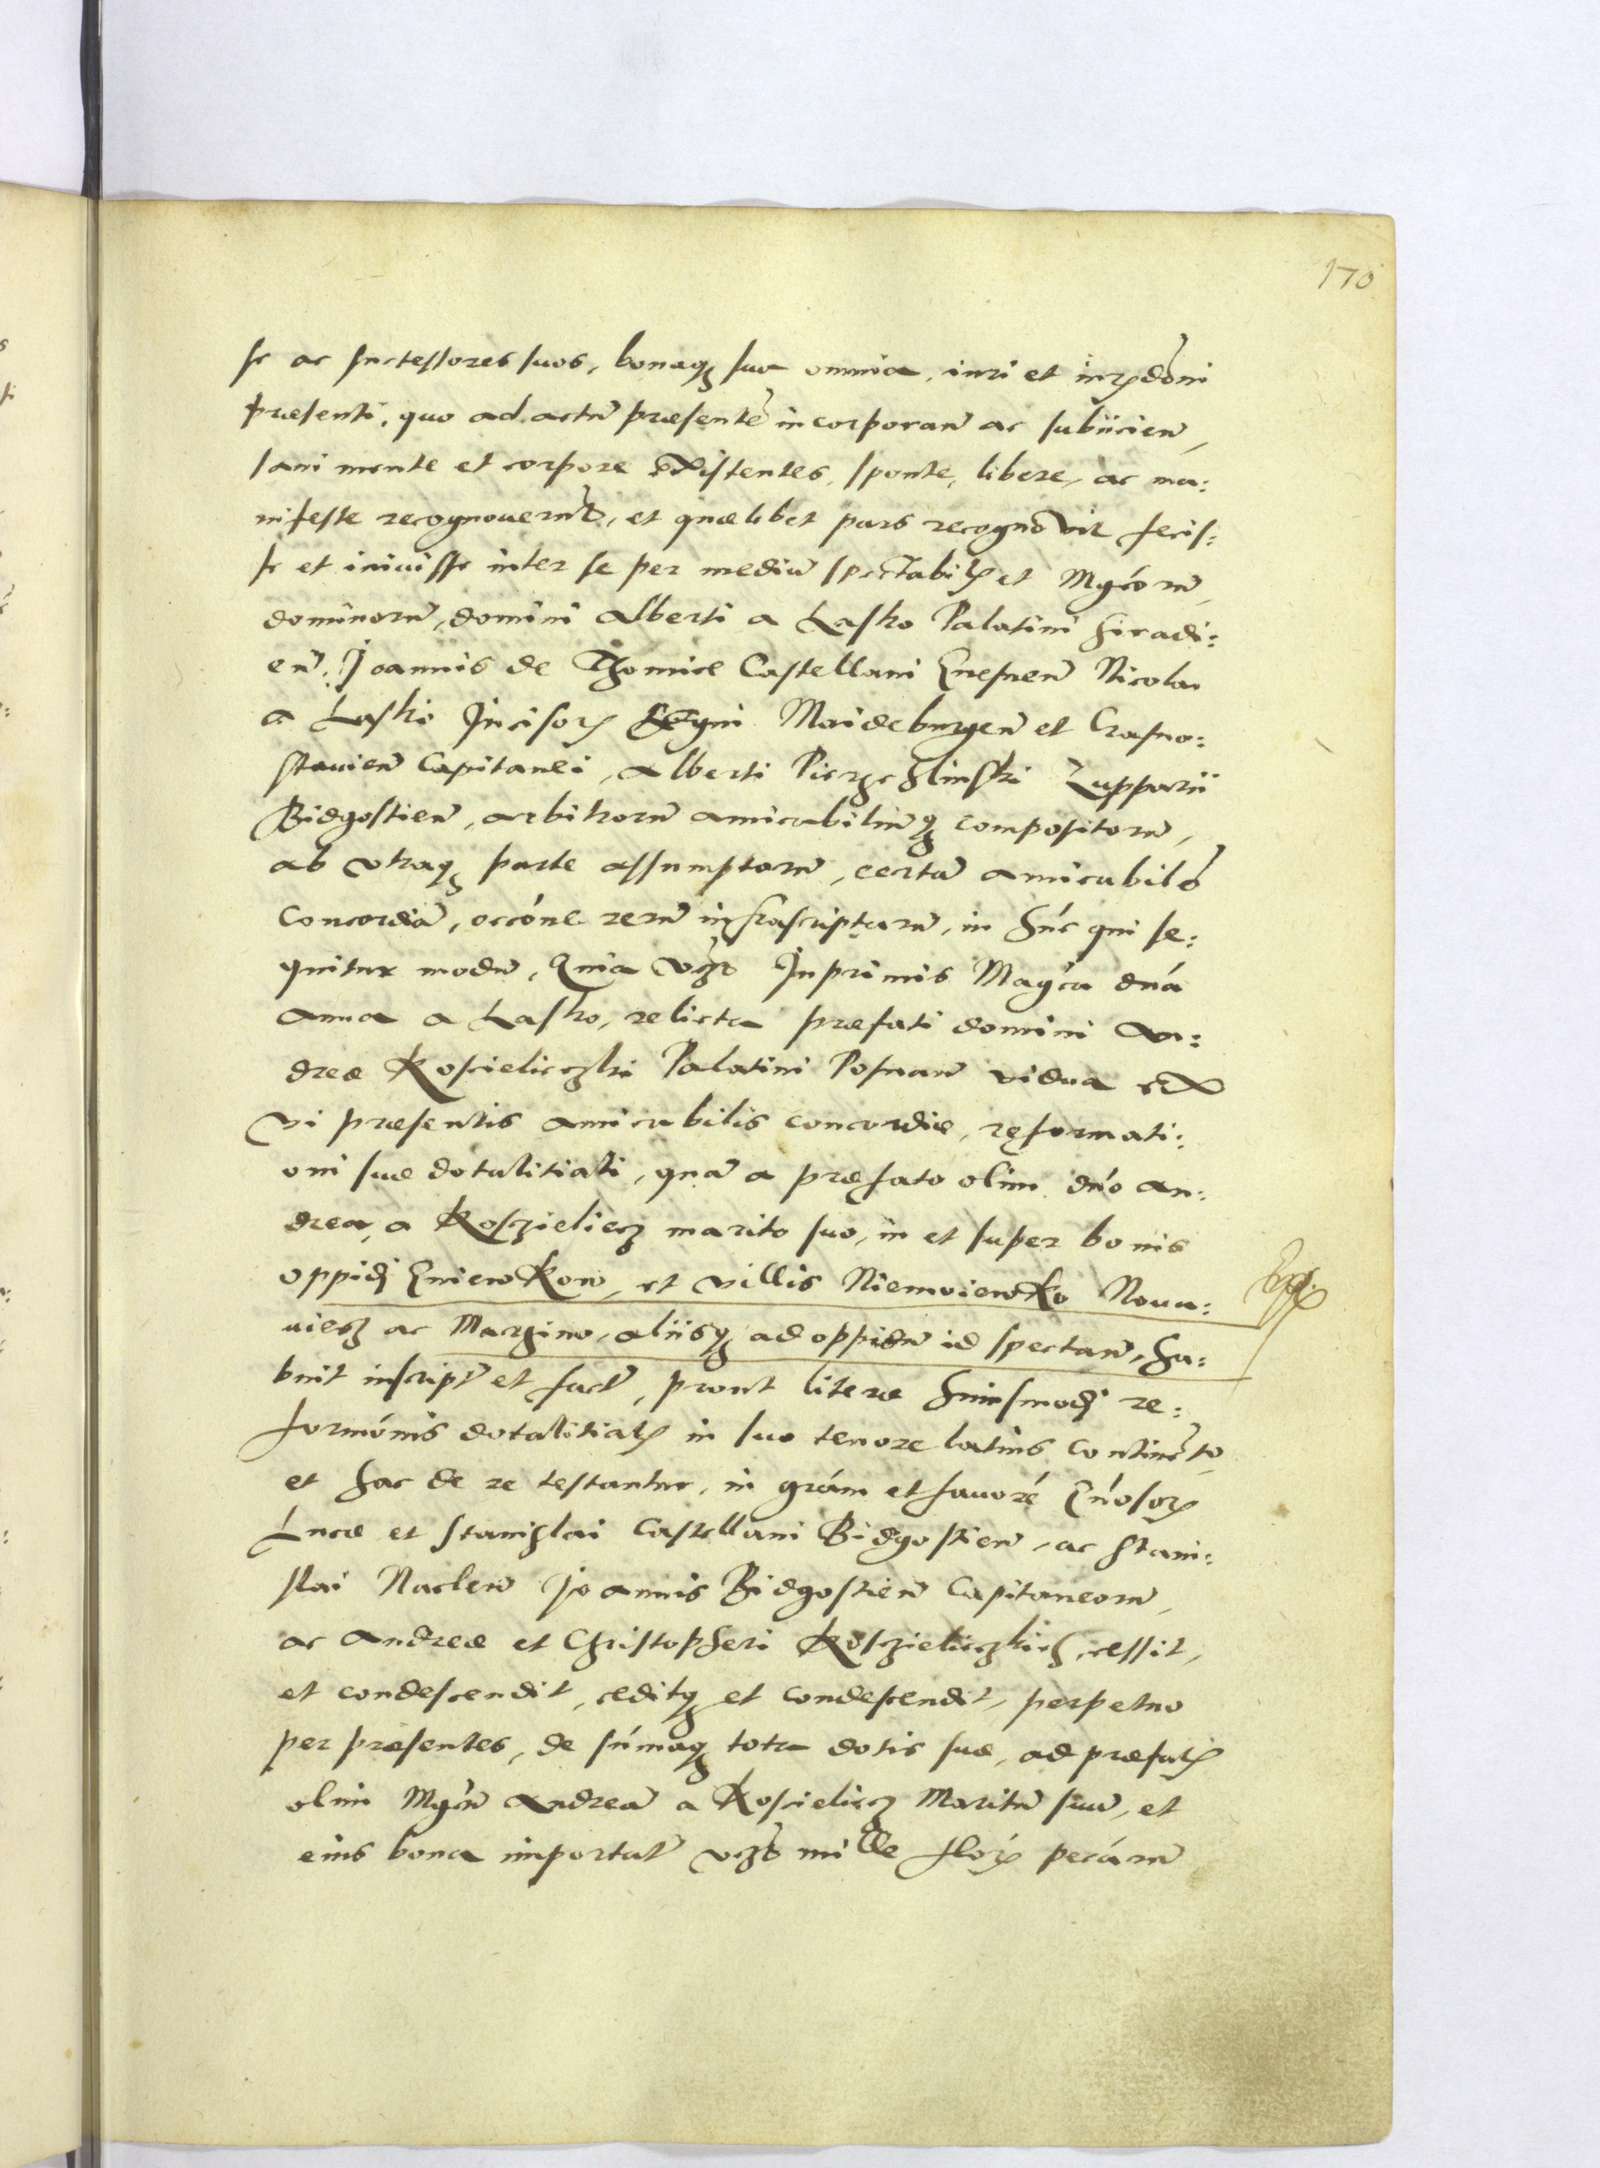 170
se ac successores suos, bonaq3 sua omnia, iuri et iurisdõni
præsenti, quo ad actũ præsentẽ incorporan̄ ac subiicien̄,
sani mente et corpore existentes, sponte, libere, ac ma:
nifeste recognouerũt, et quælibet pars recognovit fecis:
se et iniuisse inter se per mediũ spectabiliũ et Mgcorũ,
dominorũ, domini Alberti a Lasko Palatini Siradi:
en̄, Joannis de Thomice Castellani Gnesnen̄ Nicolai
a Lasko Incisoris Regni Maideburgen̄ et Crasno:
stauien̄ Capitanei, Alberti Pierzchlinski Zupparii
Bidgostien̄, arbitrorũ amicabiliũq3 compositorũ,
ab vtraq3 parte assumptorũ, certã amicabilẽ
Concordiã, occóne rerũ infrascriptarũ, in húc qui se:
quitur modũ, Quia vz Inprimis Magca dná
Anna a Lasko, relicta præfati domini An:
dreæ Koscieliczki Palatini Posnan̄ vidua ex
vi præsentis amicabilis concordiæ, reformati:
oni suæ dotalitiali, quã a præfato olim dno An:
drea, a Kosczieliecz marito suo, in et super bonis
oppidi Gniewkow, et villis Niemoiewko Noua:
uiesz ac Marzino, aliisq3 ad oppidũ id spectan̄, ha:
buit inscript̃ et fact̃, prout literæ huiusmodi re:
formónis dotalitialis in suo tenore latius continẽt,
et hac de re testantur, in grám et fauoré Gnosor̃
Lucæ et Stanislai Castellani Bidgostien̄, ac Stani:
slai Naclen̄ Joannis Bidgostien̄ Capitaneorũ,
ac Andreæ et Christopheri Kosczieliczkich, cessit,
et condescendit, ceditq3 et condescendit, perpetuo
per præsentes, de súmaq3 tota dotis suæ, ad præfat̃
olim Mgcũ Andreã a Koscieliecz Maritũ suũ, et
eius bona importat̃ vz mille flor̃ pecúarũ